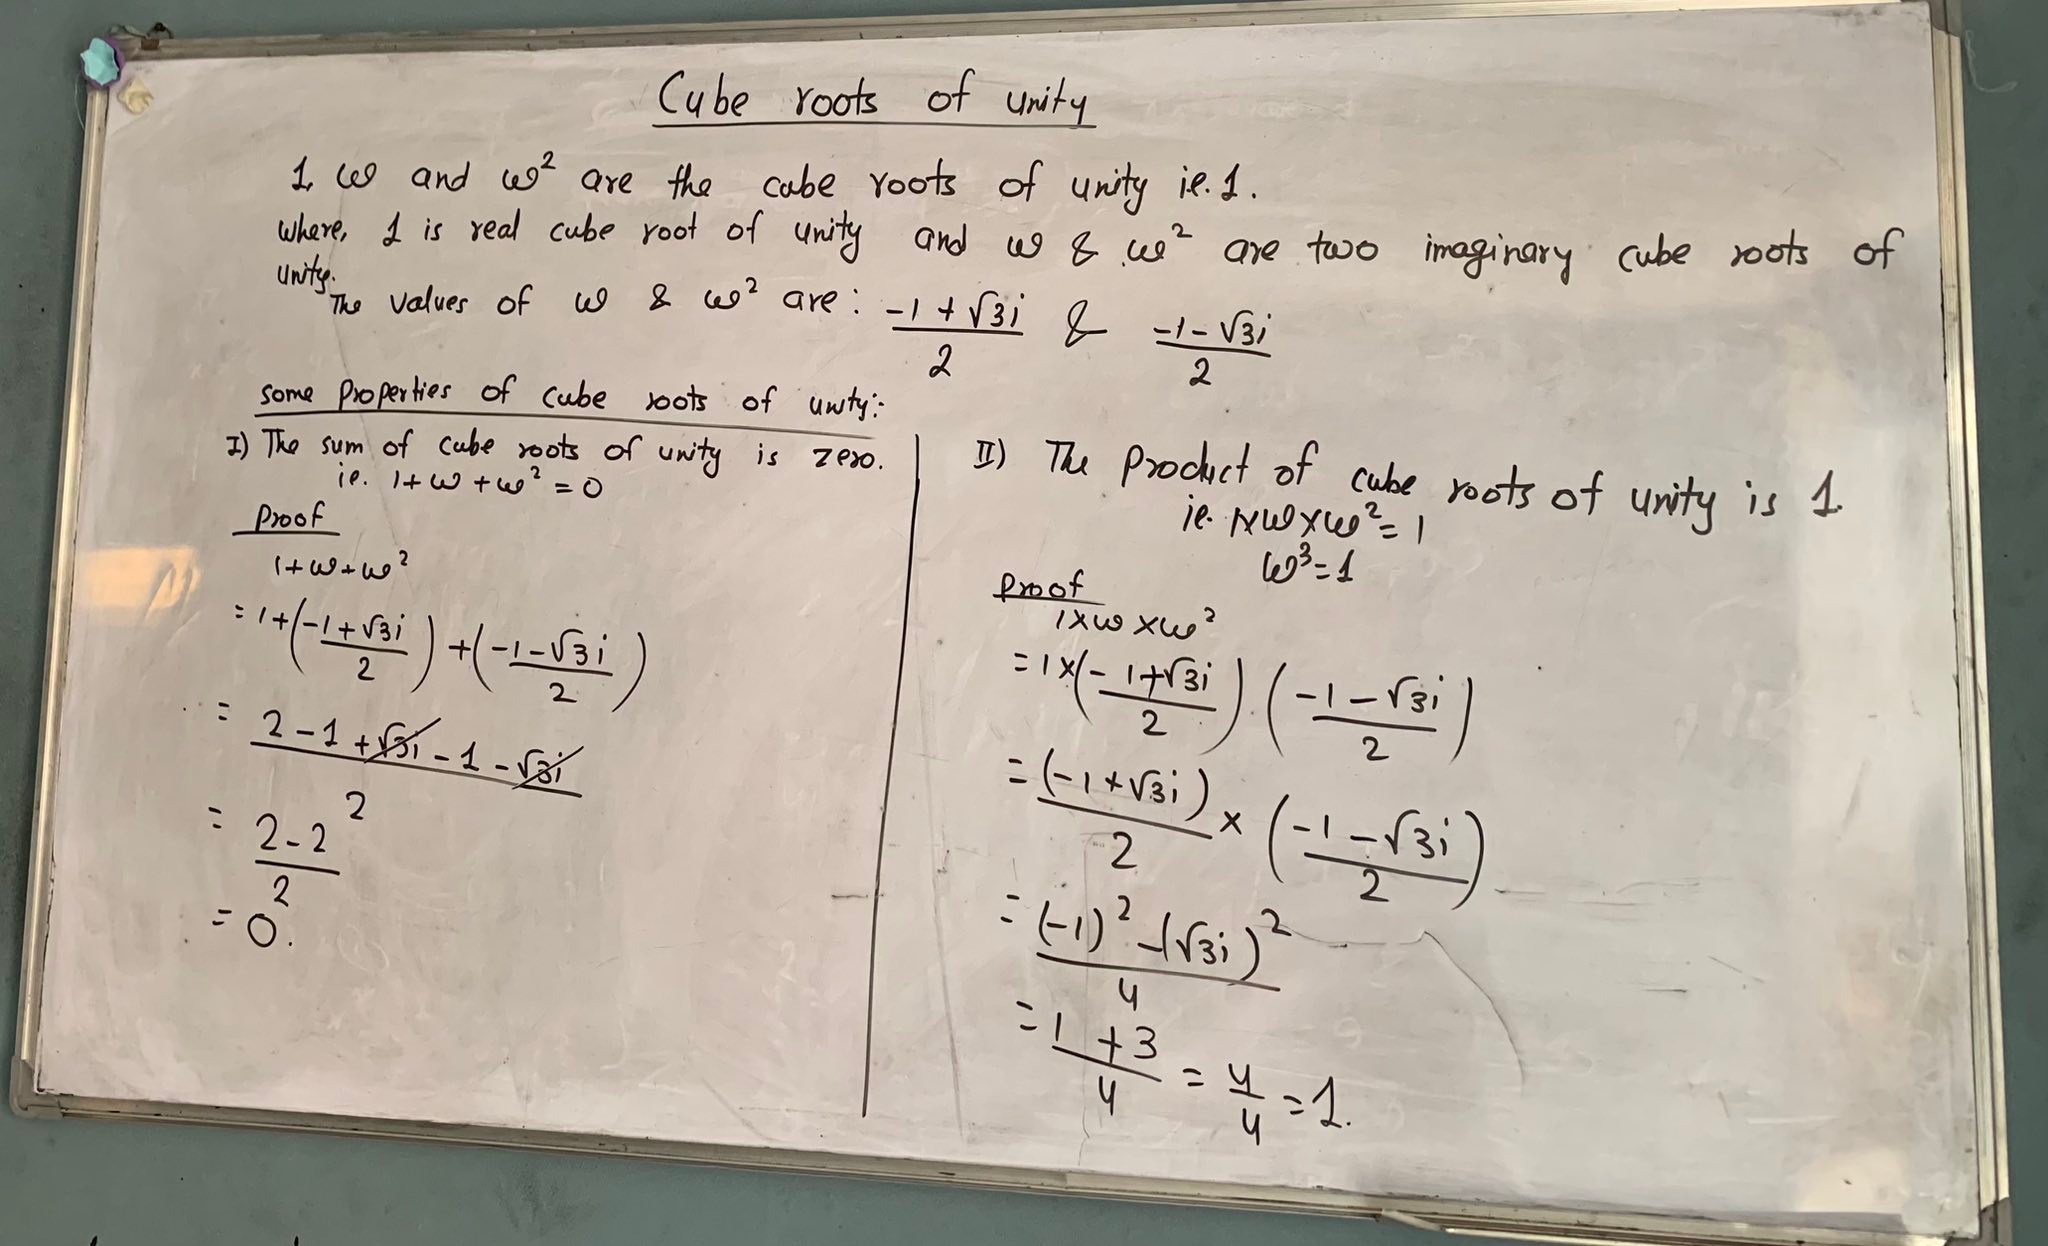 Cube roots of unity
1, ω and ω² are the cube roots of unity ie. 1.
where, 1 is real cube root of unity and ω & ω² are two imaginary cube roots of
unity.
The values of ω & ω² are: (-1 + √3i)/2 & (-1 - √3i)/2
some Properties of cube roots of unity:-
I) The sum of cube roots of unity is zero.
ie. 1 + ω + ω² = 0
Proof
1 + ω + ω²
= 1 + ((-1 + √3i)/2) + ((-1 - √3i)/2)
= (2 - 1 + √3i - 1 - √3i)/2
= (2 - 2)/2
= 0.
II) The Product of cube roots of unity is 1.
ie. 1×ω×ω² = 1
ω³ = 1
Proof
1×ω×ω²
= 1×((-1 + √3i)/2) . ((-1 - √3i)/2)
= (-1 + √3i)/2 × ((-1 - √3i)/2)
= ((-1)² - (√3i)²)/4
= (1 + 3)/4 = 4/4 = 1.